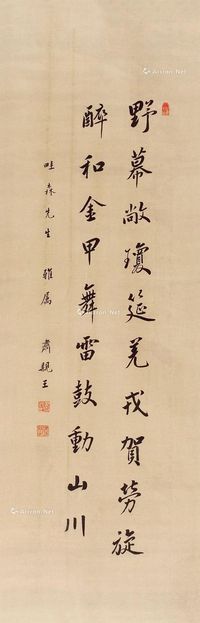 野幕敞瓊筵羌戎賀勞旋
醉和金甲舞雷鼓動山川
哇森先生雅属
肅親王